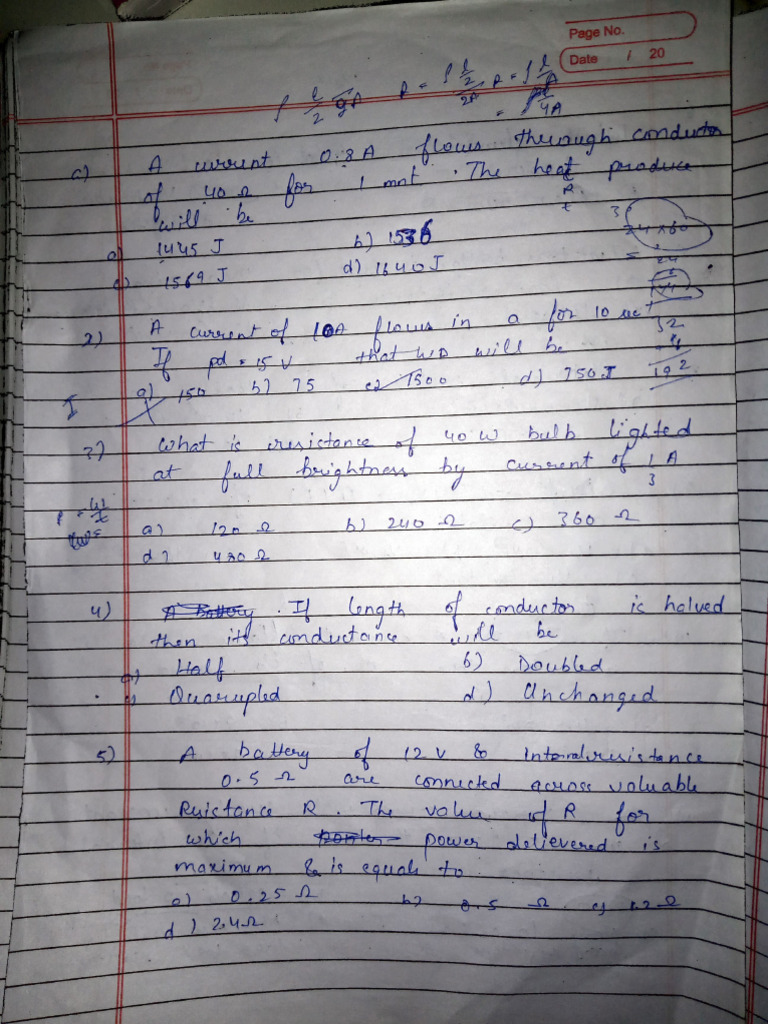 Page No.
Date / 20
a) A current 0.8 A flows through conductor
of 40 Ω for 1 mnt . The heat produce
will be
a) 1445 J b) 1536
c) 1569 J d) 1640 J
24 x 60
2) A current of 10A flows in a for 10 sec
If pd = 15 V that WD will be
a) 150 b) 75 c) 1500 d) 750 J
192
I
3) What is resistance of 40 W bulb lighted
at full brightness by current of 1 A
3
a) 120 Ω b) 240 Ω c) 360 Ω
d) 480 Ω
4) A Battery . If length of conductor is halved
then its conductance will be
a) Half b) Doubled
c) Quarupled d) Unchanged
5) A battery of 12 V & Internal resistance
0.5 Ω are connected across valuable
Resistance R . The value of R for
which power delievered is
maximum & is equals to
a) 0.25 Ω b) 0.5 Ω c) 1.2 Ω
d) 2.4 Ω